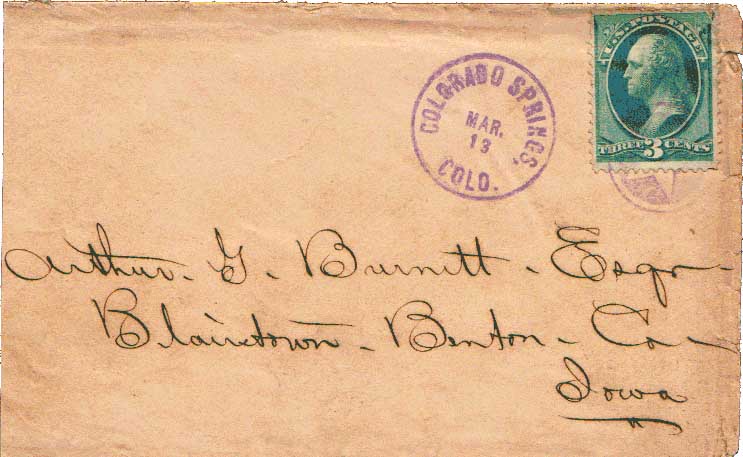 U.S. POSTAGE
THREE 3 CENTS
COLORADO SPRINGS,
MAR.
13
COLO.
Arthur. G. Burnett - Esqr -
Blairstown - Benton - Co -
Iowa